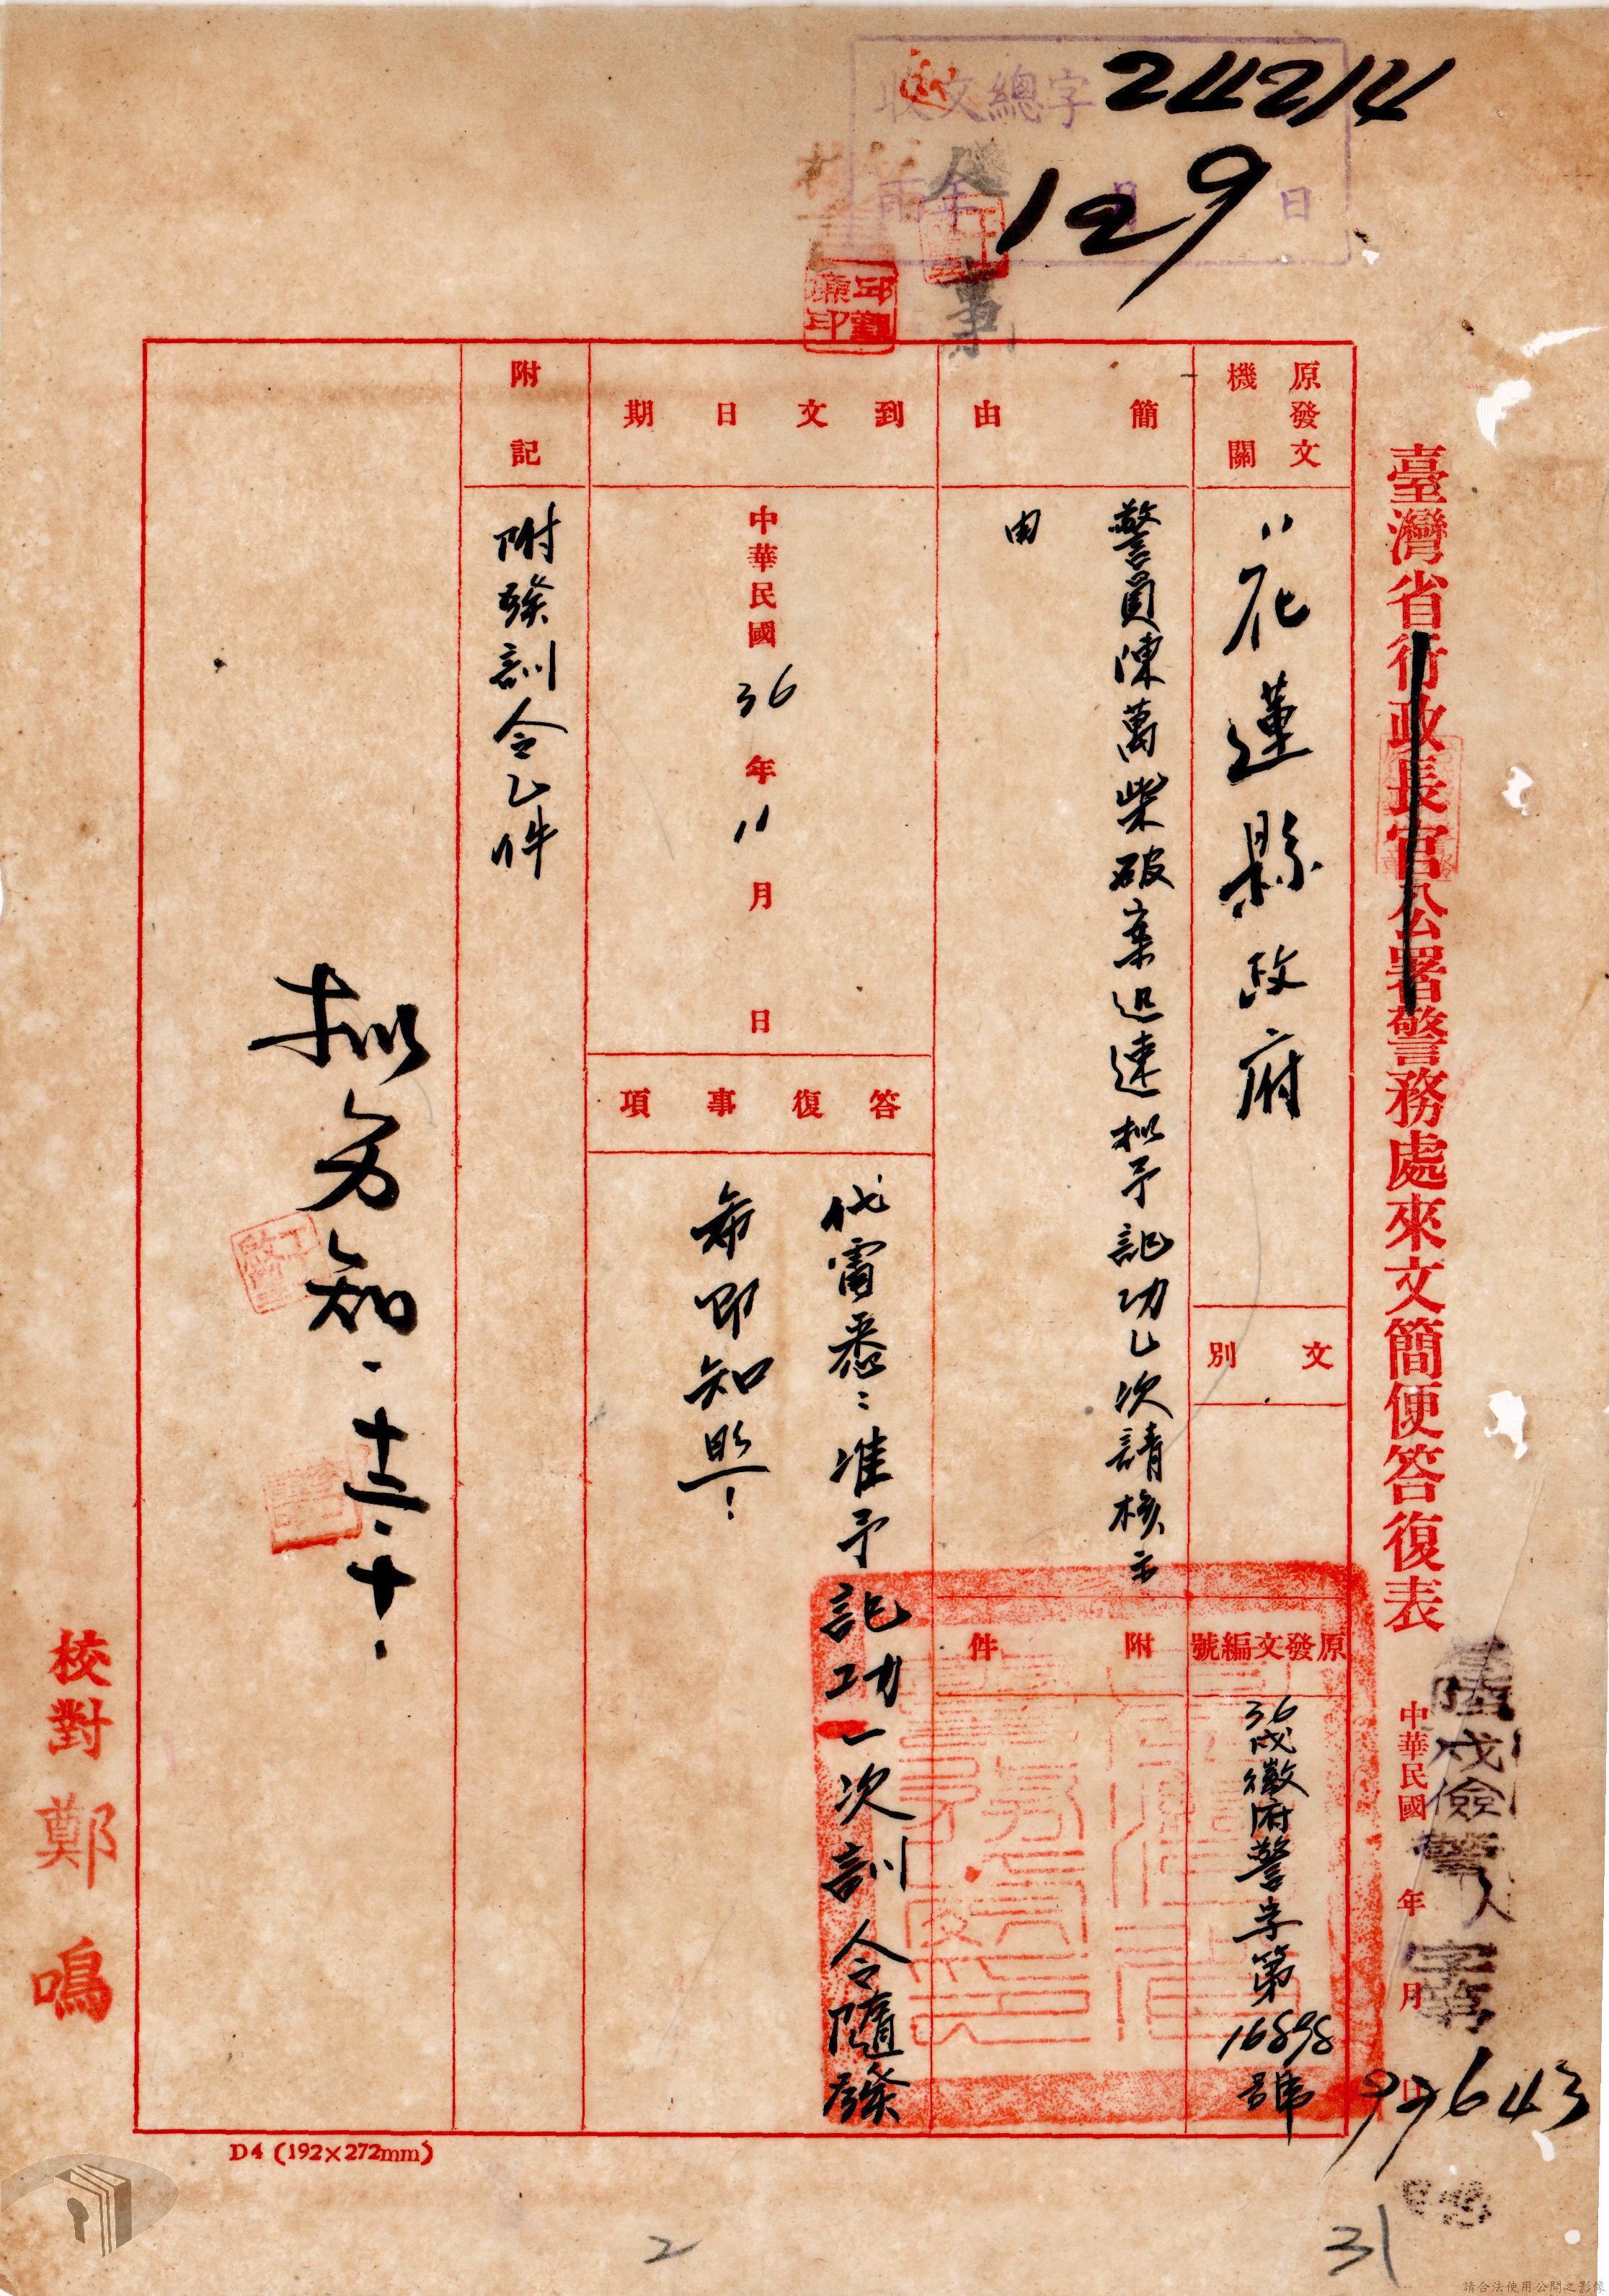 收文總字 24214
年 月 日
129
人事
邱勤廉印
臺灣省行政長官公署警務處來文簡便答復表
中華民國 年 月 日
戌儉警人字第 97643
原發文機關
花蓮縣政府
文別
原發文編號
36戌徵府警字第16898號
簡由
警員陳萬柴破案迅速擬予記功乙次請核示
由
附件
到文日期
中華民國36年11月 日
答復事項
代電悉:准予記功一次訓令隨發
希即知照!
附記
附發訓令乙件
擬分知.十二.十.
校對 鄭鳴
D4 (192×272mm)
2
31
請合法使用公開之影像